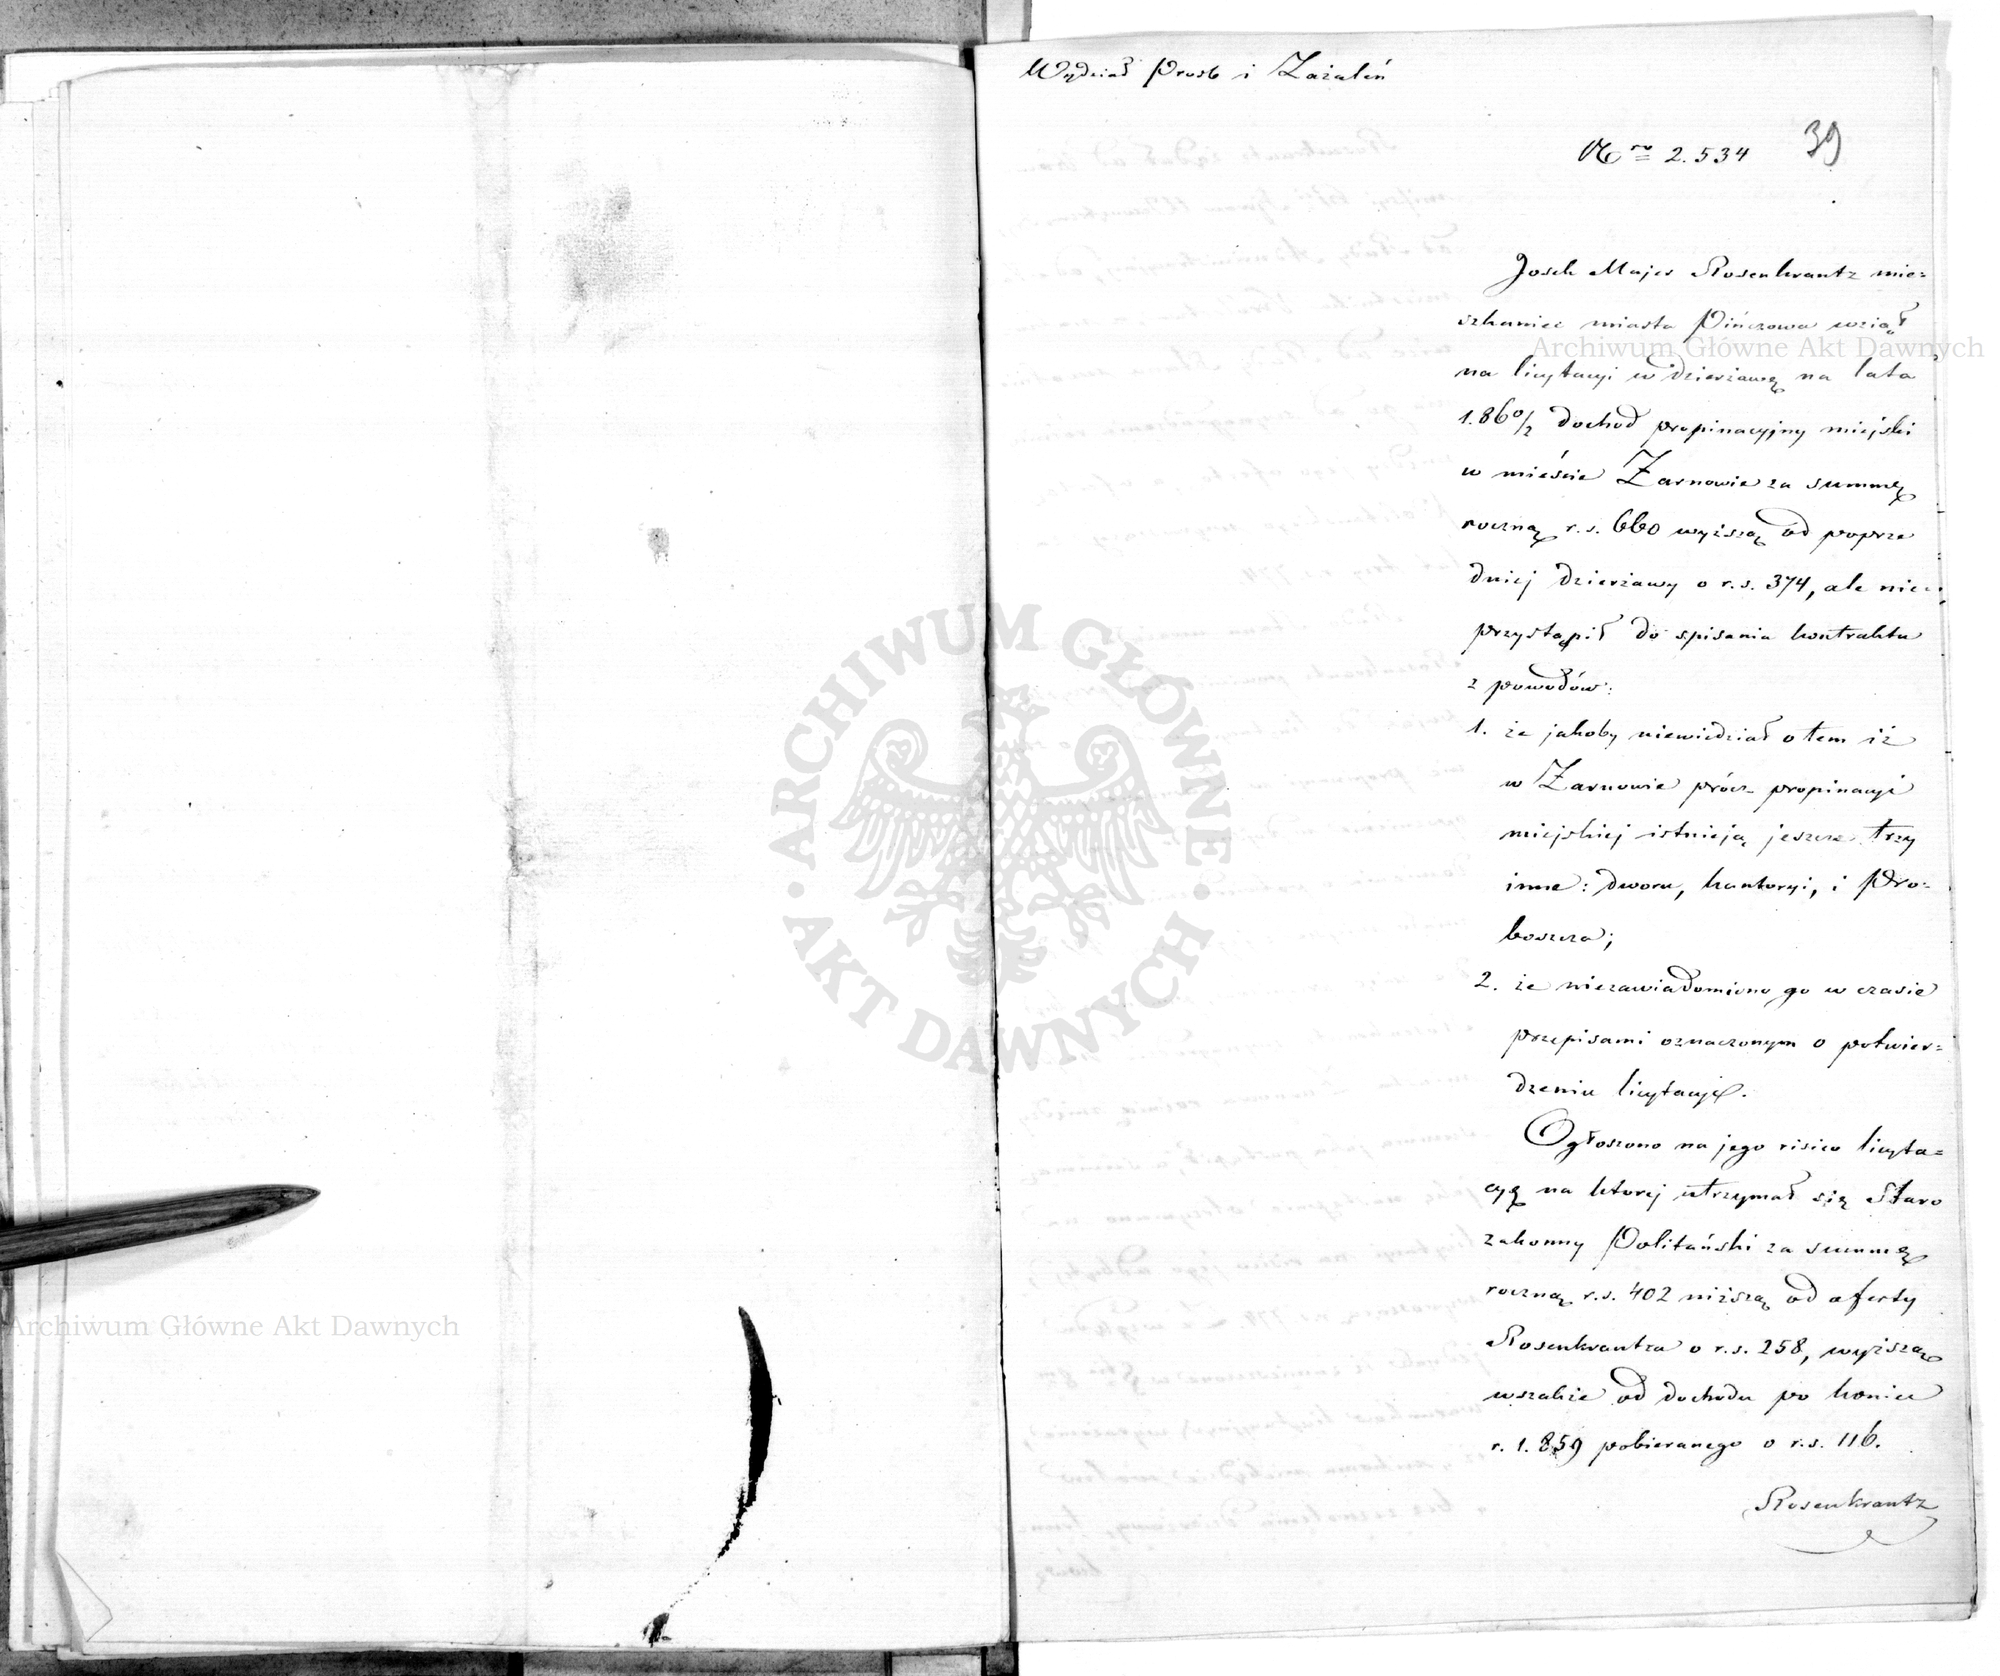 Wydział Prosb i Zażaleń
39
Nro 2.534
Josek Majer Rosenkrantz mie=
szkaniec miasta Pińczowa wziął
na licytacyi w dzierżawę na lata
1.860/2 dochod propinacyjny miejski
w mieście Żarnowie za summę
roczną r.s. 660 wyższą od poprze
dniej dzierżawy o r.s. 374, ale nie
przystąpił do spisania kontraktu
z powodów:
1. że jakoby niewiedział o tem iż
w Żarnowie prócz propinacyi
miejskiej istnieją jeszcze trzy
inne: dworu, kantoryi, i Pro=
boszcza;
2. że niezawiadomiono go w czasie
przepisami oznaczonym o potwier=
dzeniu licytacyi.
Ogłoszono na jego risico licyta=
cyę na ktorej utrzymał się Staro
zakonny Politański za summę
roczną r.s. 402 niższą od oferty
Rosenkrantza o r.s. 258, wyższą
wszakże od dochodu po koniec
r. 1.859 pobieranego o r.s. 116.
Rosenkrantz
Archiwum Główne Akt Dawnych
Archiwum Główne Akt Dawnych
ARCHIWUM GŁÓWNE
AKT DAWNYCH